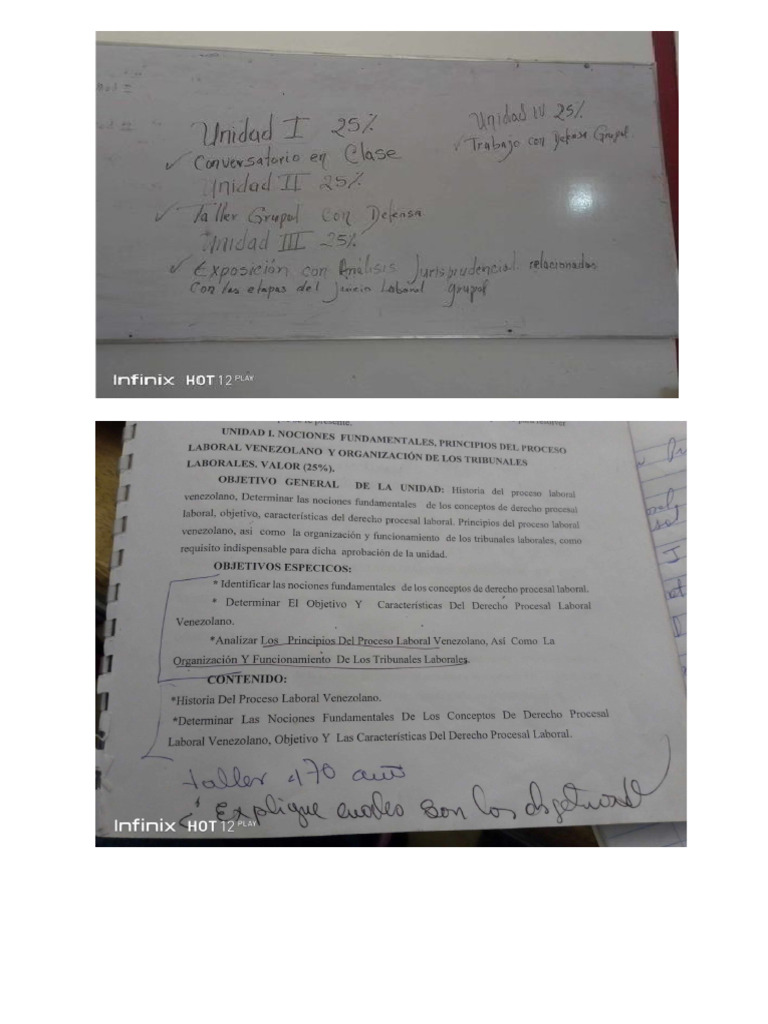 Unidad I 25%
✓ Conversatorio en Clase
Unidad II 25%
✓ Taller Grupal con Defensa
Unidad III 25%
✓ Exposición con Análisis Jurisprudencial relacionadas
Con las etapas del Juicio Laboral grupal
Unidad IV 25%
✓ Trabajo con Defensa Grupal
Infinix HOT 12 PLAY
UNIDAD I. NOCIONES FUNDAMENTALES, PRINCIPIOS DEL PROCESO
LABORAL VENEZOLANO Y ORGANIZACIÓN DE LOS TRIBUNALES
LABORALES. VALOR (25%).
OBJETIVO GENERAL DE LA UNIDAD: Historia del proceso laboral
venezolano, Determinar las nociones fundamentales de los conceptos de derecho procesal
laboral, objetivo, características del derecho procesal laboral. Principios del proceso laboral
venezolano, asi como la organización y funcionamiento de los tribunales laborales, como
requisito indispensable para dicha aprobación de la unidad.
OBJETIVOS ESPECICOS:
* Identificar las nociones fundamentales de los conceptos de derecho procesal laboral.
* Determinar El Objetivo Y Características Del Derecho Procesal Laboral
Venezolano.
*Analizar Los Principios Del Proceso Laboral Venezolano, Así Como La
Organización Y Funcionamiento De Los Tribunales Laborales.
CONTENIDO:
*Historia Del Proceso Laboral Venezolano.
*Determinar Las Nociones Fundamentales De Los Conceptos De Derecho Procesal
Laboral Venezolano, Objetivo Y Las Características Del Derecho Procesal Laboral.
taller
¿Explique cuales son los
Infinix HOT 12 PLAY